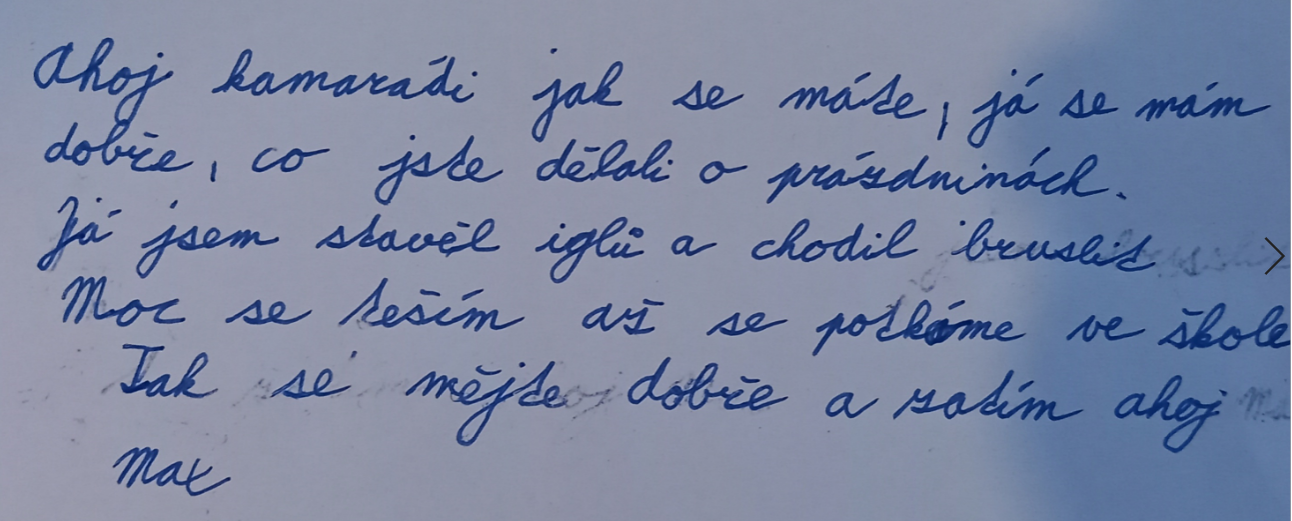 Ahoj kamarádi jak se máte, já se mám
dobře, co jste dělali o prázdninách.
Já jsem stavěl iglů a chodil bruslit
Moc se těším až se potkáme ve škole
Tak se mějte dobře a zatím ahoj
Max